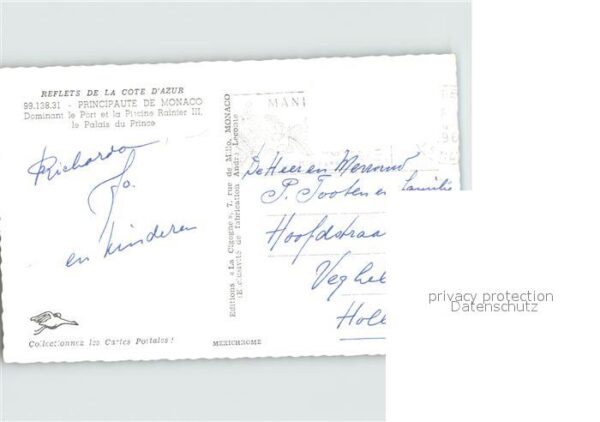 REFLETS DE LA COTE D'AZUR
99.138.31 - PRINCIPAUTE DE MONACO
Dominant le Port et la Piscine Rainier III,
le Palais du Prince
Richardo
Jo.
en kinderen
Collectionnez les Cartes Postales !
Editions « La Cigogne », 7, rue de Millo, MONACO
(Exclusivité de fabrication André Leconte
MEXICHROME
MANI
De Heer en Mevrouw
P. Tooten en familie
Hoofdstraa
Veghe
Holl
privacy protection
Datenschutz